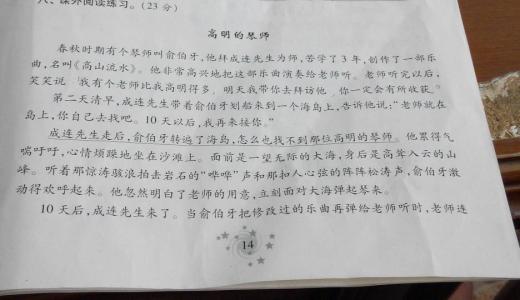 八、课外阅读练习。(23分)
高明的琴师
春秋时期有个琴师叫俞伯牙,他拜成连先生为师,苦学了3年,创作了一部乐
曲,名叫《高山流水》。他非常高兴地把这部乐曲演奏给老师听。老师听完以后,
笑笑说:“我有个老师比我高明得多,明天我带你去拜访他,你一定会有所收获。”
第二天清早,成连先生带着俞伯牙划船来到一个海岛上,告诉他说:“老师就在
岛上,你自己去找吧。10天以后,我再来接你。”
成连先生走后,俞伯牙转遍了海岛,怎么也找不到那位高明的琴师。他累得气
喘吁吁,心情烦躁地坐在沙滩上。面前是一望无际的大海,身后是高耸入云的山
峰。听着那惊涛骇浪拍去岩石的“哗哗”声和那扣人心弦的阵阵松涛声,俞伯牙激
动得欢呼起来。他忽然明白了老师的用意,立刻面对大海弹起琴来。
10天后,成连先生来了。当俞伯牙把修改过的乐曲再弹给老师听时,老师连
14